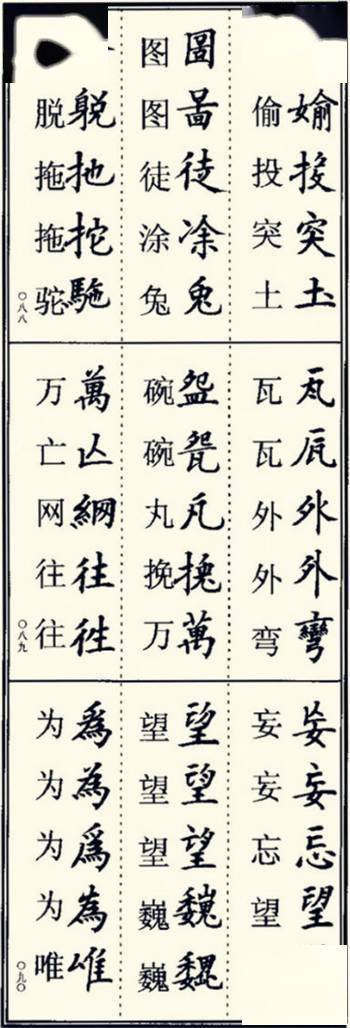 媮投突土
偷投突土
圖啚徒凃兔
图图徒涂兔
扡拕駞
脱拖拖驼
〇八八
瓦瓦外外彎
瓦瓦外外弯
盌瓫丸挽萬
碗碗丸挽万
萬亾網往徃
万亡网往往
〇八九
妄妄忘望
妄妄忘望
望望望巍巍
望望望巍巍
爲為爲為唯
为为为为唯
〇九〇